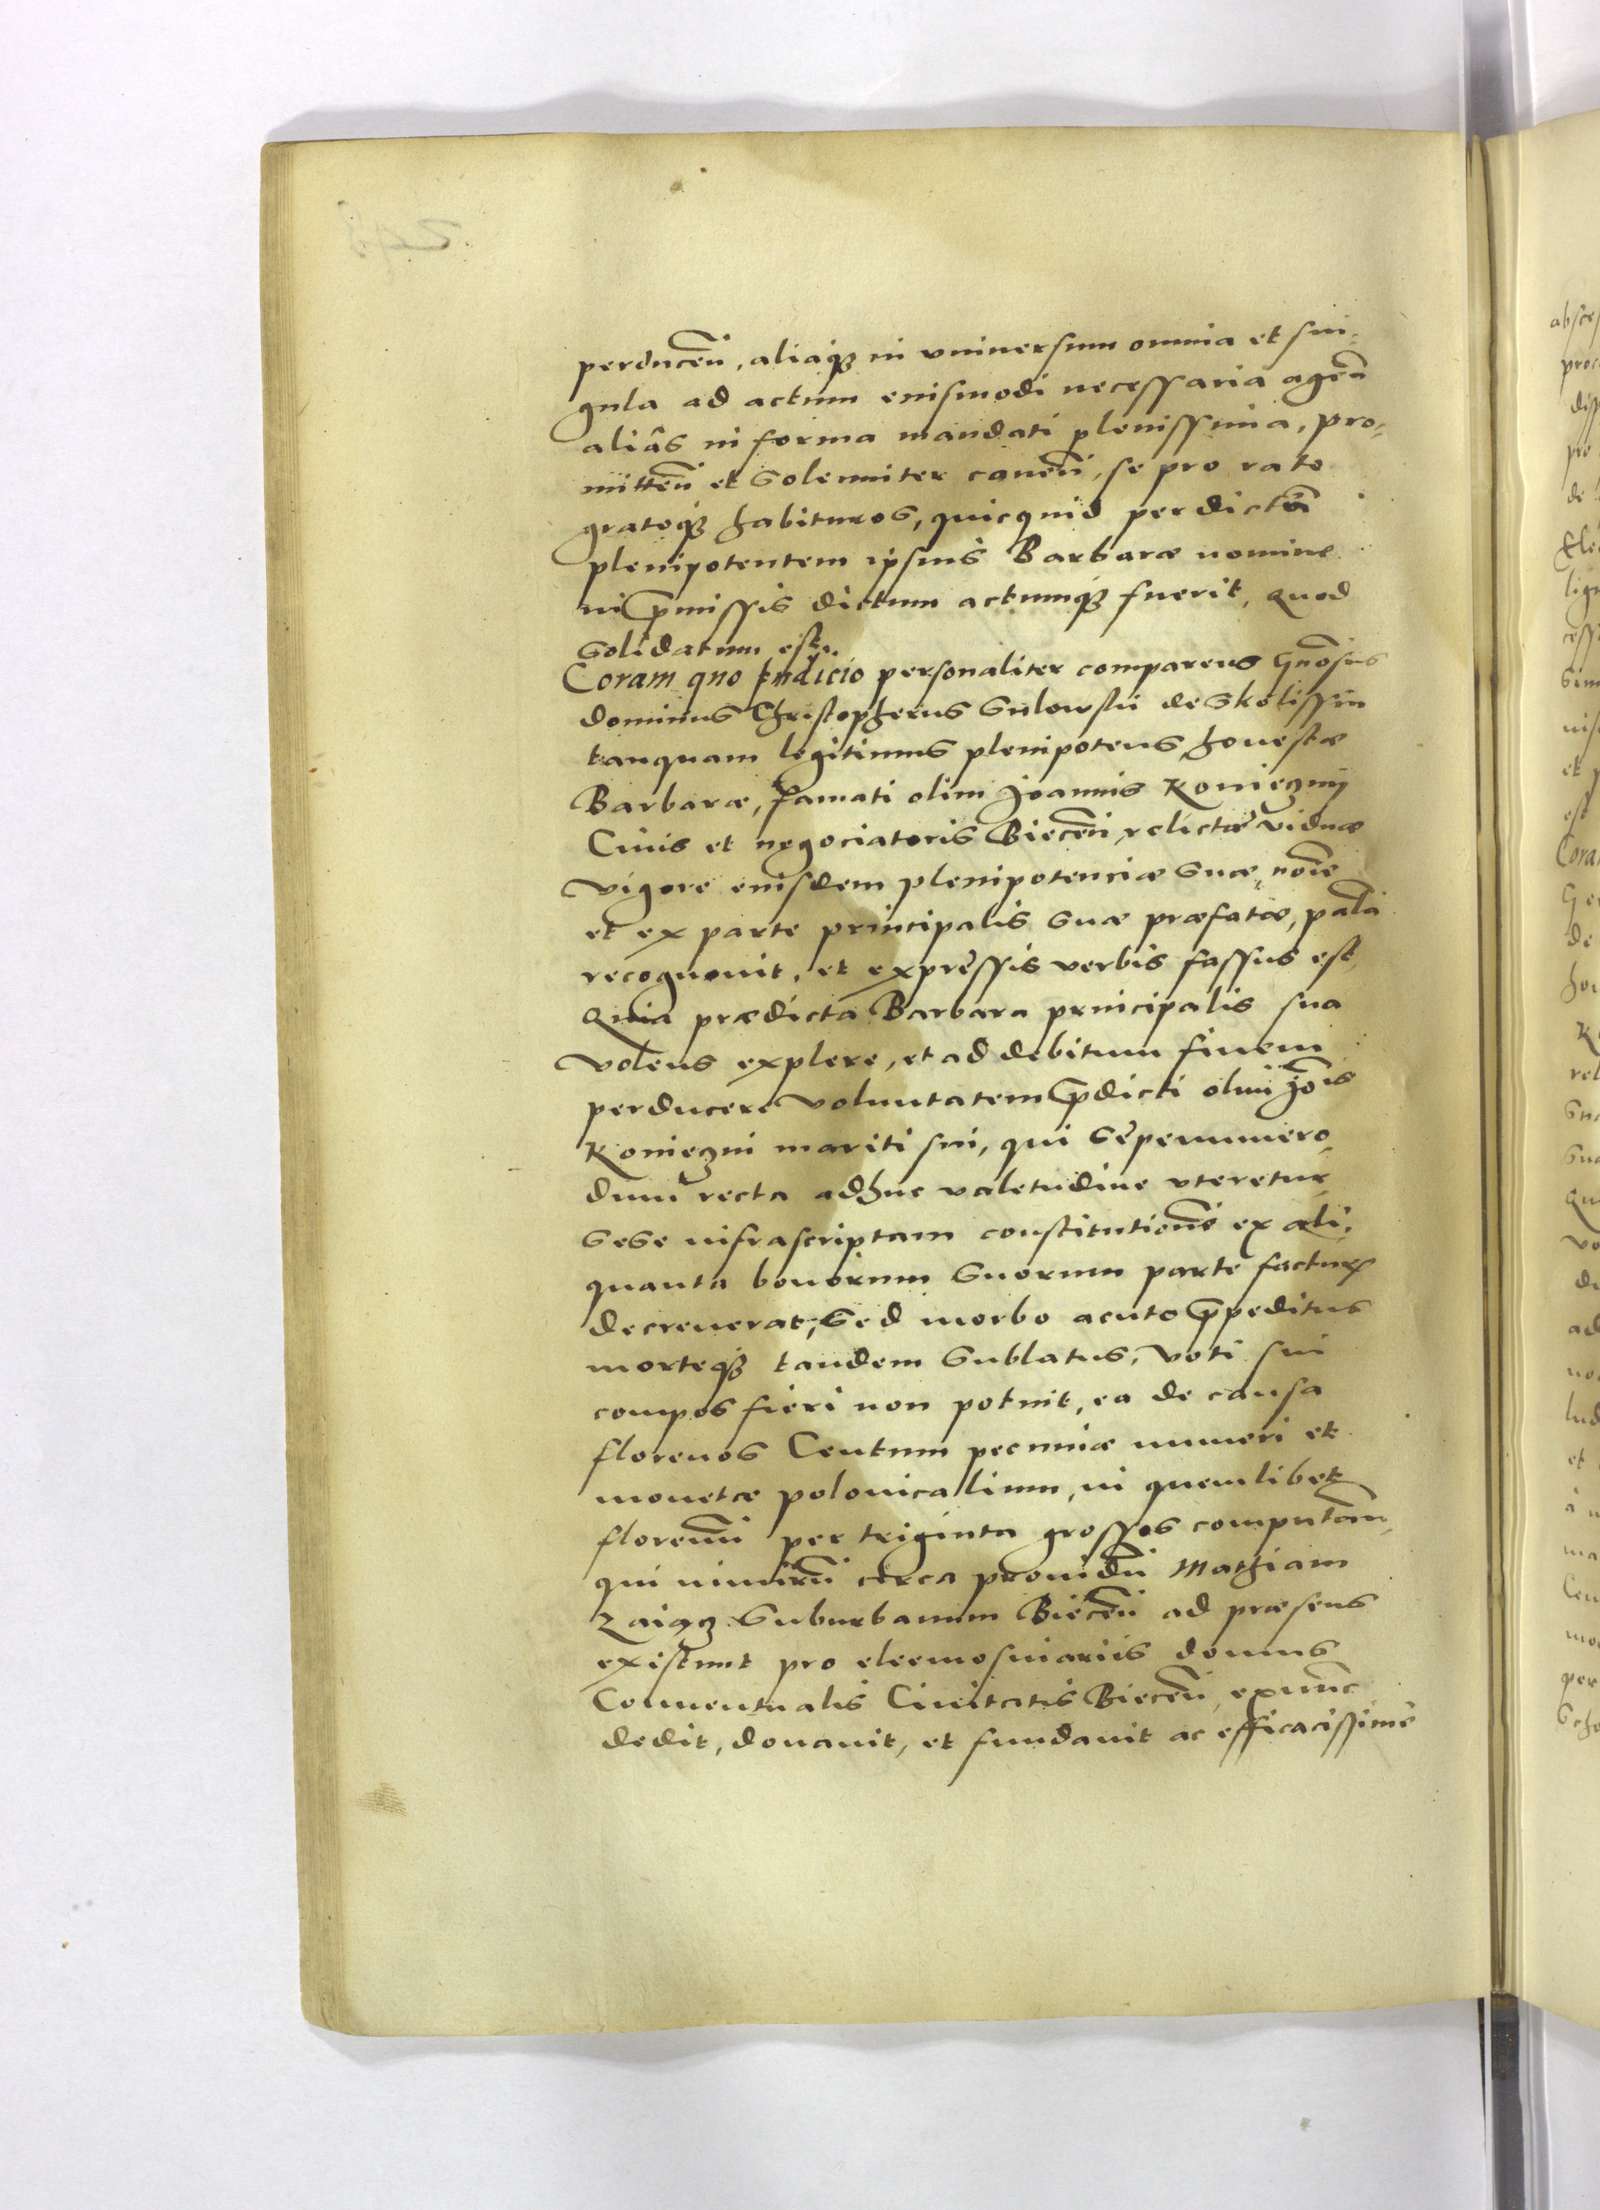 perducen̄, aliaq́ʒ in vniuersum omnia et sin-
gula ad actum eiusmodi necessaria agen̄
aliâs in forma mandati plenissima, pro-
mitten̄ et solenniter cauen̄, se pro rato
gratoq́ʒ habituros, quicquid per dictū
plenipotentem ipsius Barbaræ nomine
in p̄missis dictum actumq́ʒ fuerit, quod
solidatum est.
Coram quo iudicio personaliter comparens Gn̄osus
dominus Christopherus Sulowski de
tanquam legitimus plenipotens honestæ
Barbaræ, famati olim Joannis Koniegzny
Ciuis et negociatoris Biecen̄, relictæ viduæ
vigore eiusdem plenipotenciæ suæ, no͞ie
et ex parte principalis suæ præfatæ, palā
recognouit, et expressis verbis fassus est,
Quia prædicta Barbara principalis sua
volens explere, et ad debitum finem
perducere voluntatem p̄dicti olim Jo͞is
Koniegzni mariti sui, qui sępenumero,
dum recta adhuc valetudine vteretur,
sese infrascriptam constitutionē ex ali-
quanta bonorum suorum parte factur̄
decreuerat, sed morbo acuto p̄peditus
morteq́ʒ tandem sublatus, voti sui
compos fieri non potuit, ea de causa
florenos Centum pecuniæ numeri et
monetæ polonicalium, in quemlibet
florenū per triginta grossos computan̄,
qui nimirū circa prouidū Mathiam
Zaiącz suburbanum Biecen̄ ad præsens
existunt pro eleemosinariis domus
Conuentualis Ciuitatis Biecen̄, exnūc
dedit, donauit, et fundauit ac efficacissimè